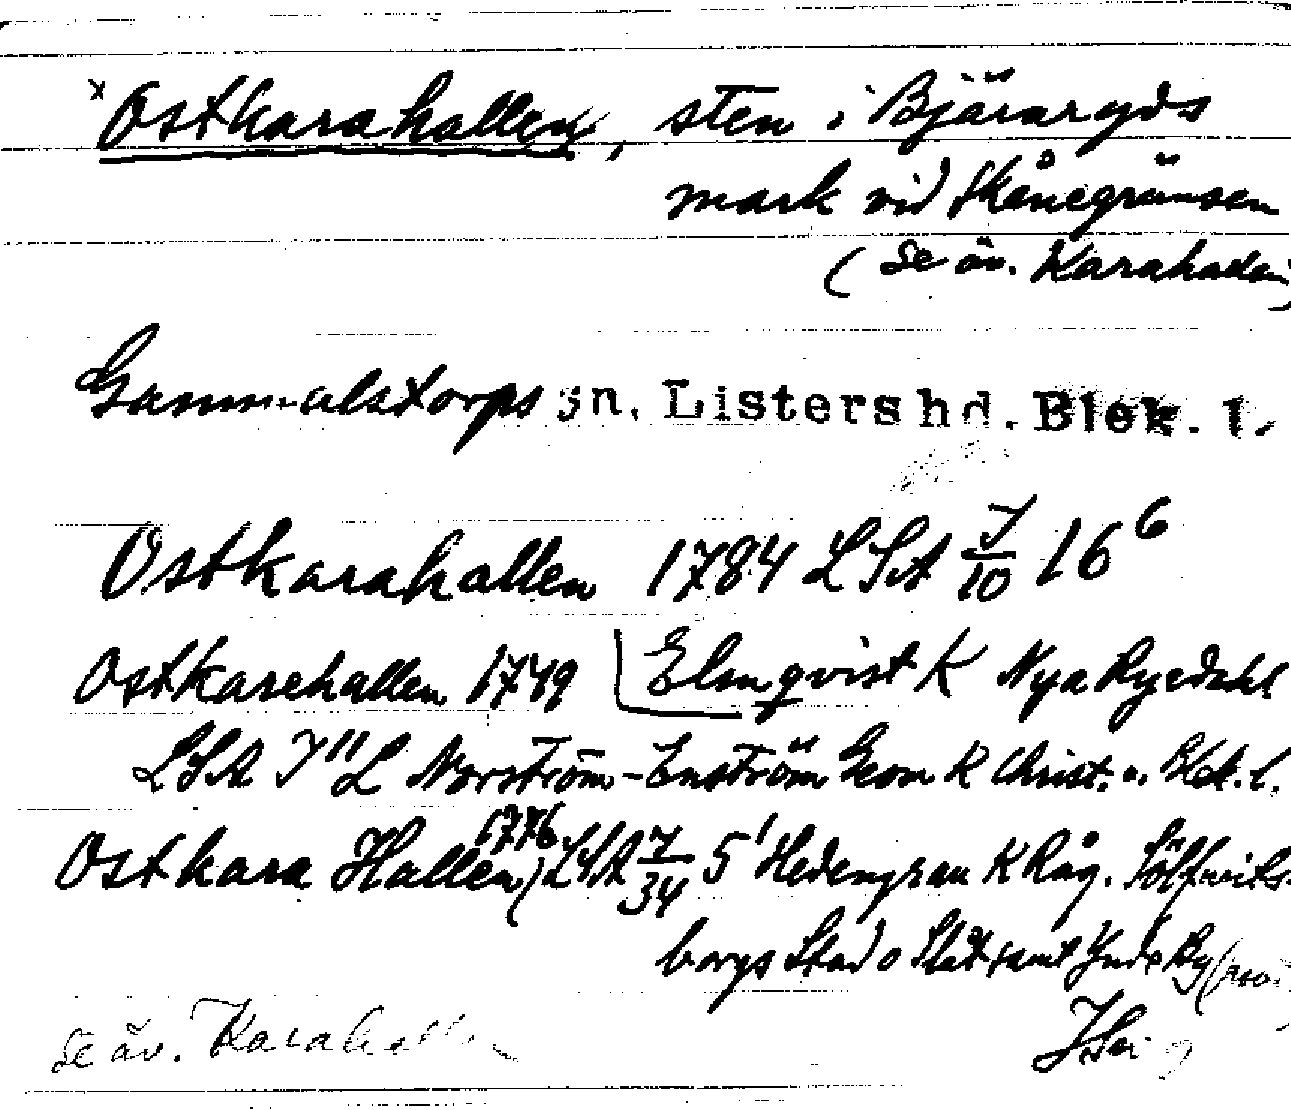 x Ostkarahallen, sten i Bjäraryds
mark vid Skånegränsen
(Se äv. Karahalen)
Gammalstorps sn. Listers hd. Blek. l.
Ostkarahallen 1784 LSA J/10 16⁶
Ostkarehallen 1749 Elmqvist K Nya Ryedahl
LSA J"L Norström-Enström Geom K Christ. o. Blek. l.
Ostkara Hallen, 1776 LSA J/34 5' Hedengran K Råg. Sölfwits-
borgs Stad o Slät samt Ynde By
se äv. Karahallen